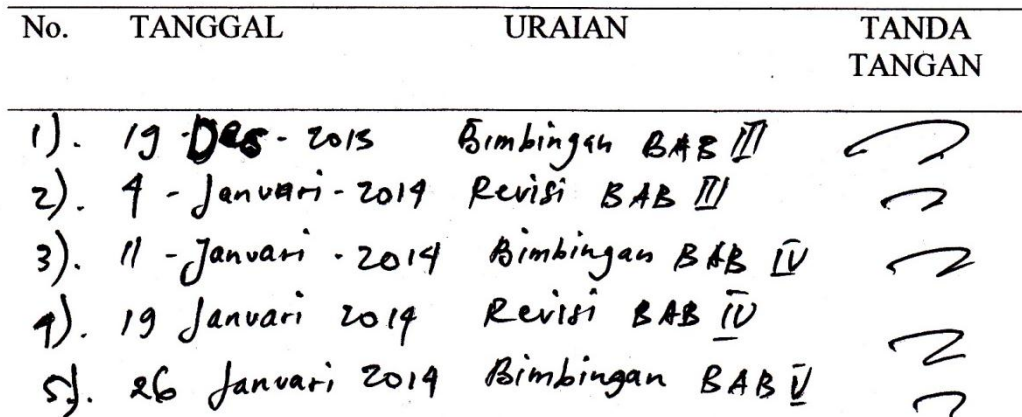 No. TANGGAL URAIAN TANDA TANGAN
1). 19 - Des - 2013 Bimbingan BAB III
2). 4 - Januari - 2014 Revisi BAB III
3). 11 - Januari - 2014 Bimbingan BAB IV
4). 19 Januari 2014 Revisi BAB IV
5). 26 Januari 2014 Bimbingan BAB V